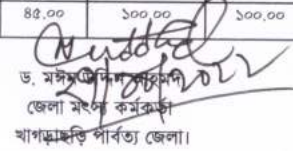 ৪৫.০০ ১০০.০০ ১০০.০০
ড. মঈন উদ্দিন আহমদ
জেলা মৎস্য কর্মকর্তা
খাগড়াছড়ি পার্বত্য জেলা।